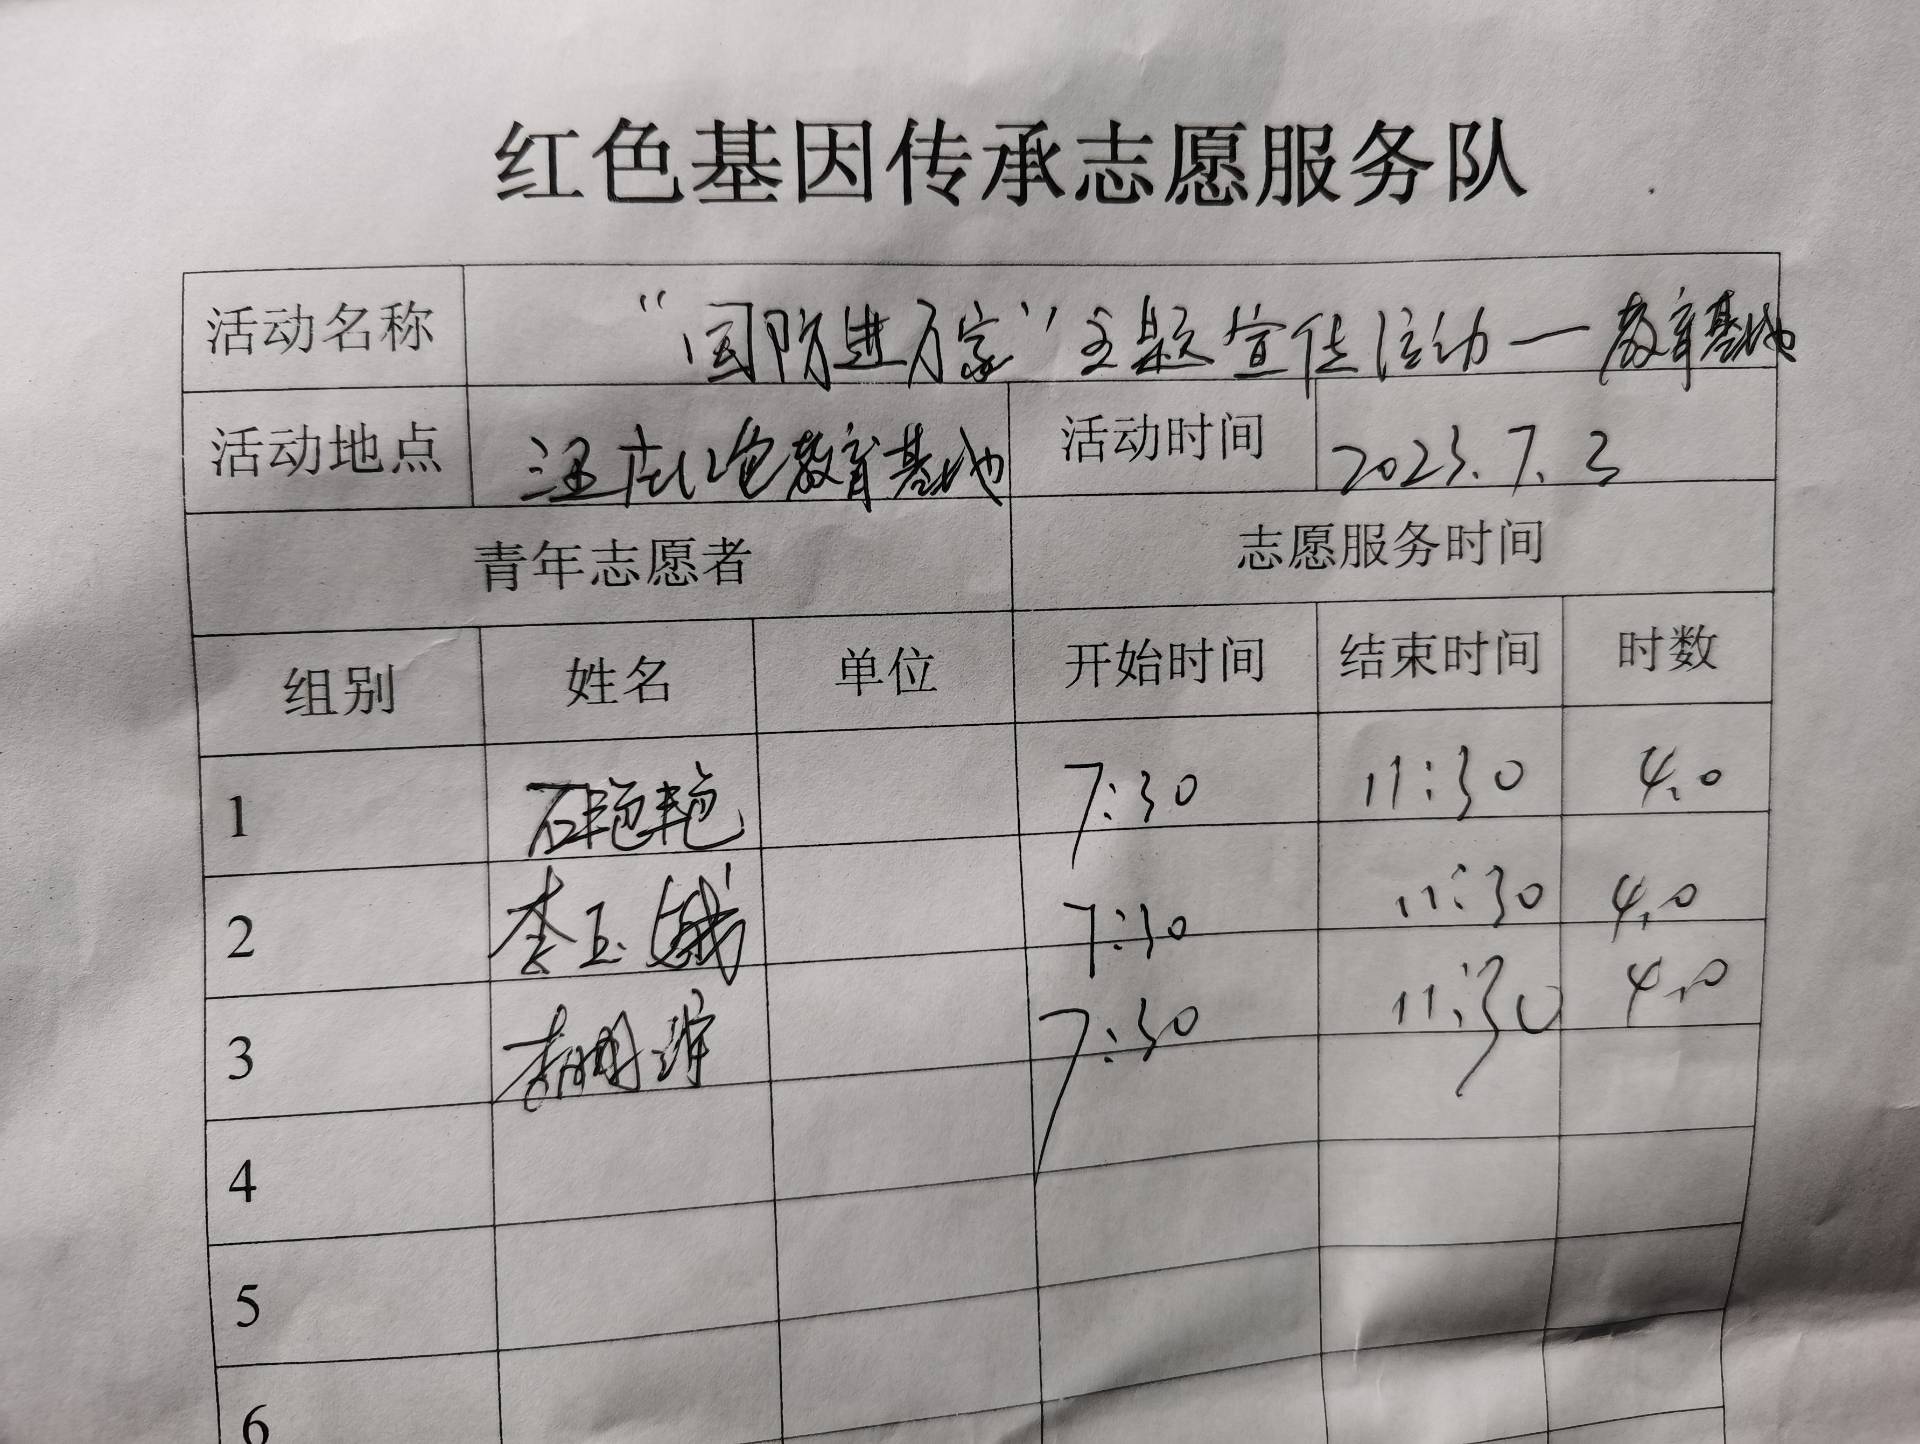 红色基因传承志愿服务队
活动名称 “国防进万家”主题宣传活动—教育基地
活动地点 汪庄红色教育基地 活动时间 2023.7.3
青年志愿者 志愿服务时间
组别 姓名 单位 开始时间 结束时间 时数
1 石艳艳 7:30 11:30 4.0
2 李玉娥 7:30 11:30 4.0
3 7:30 11:30 4.0
4
5
6